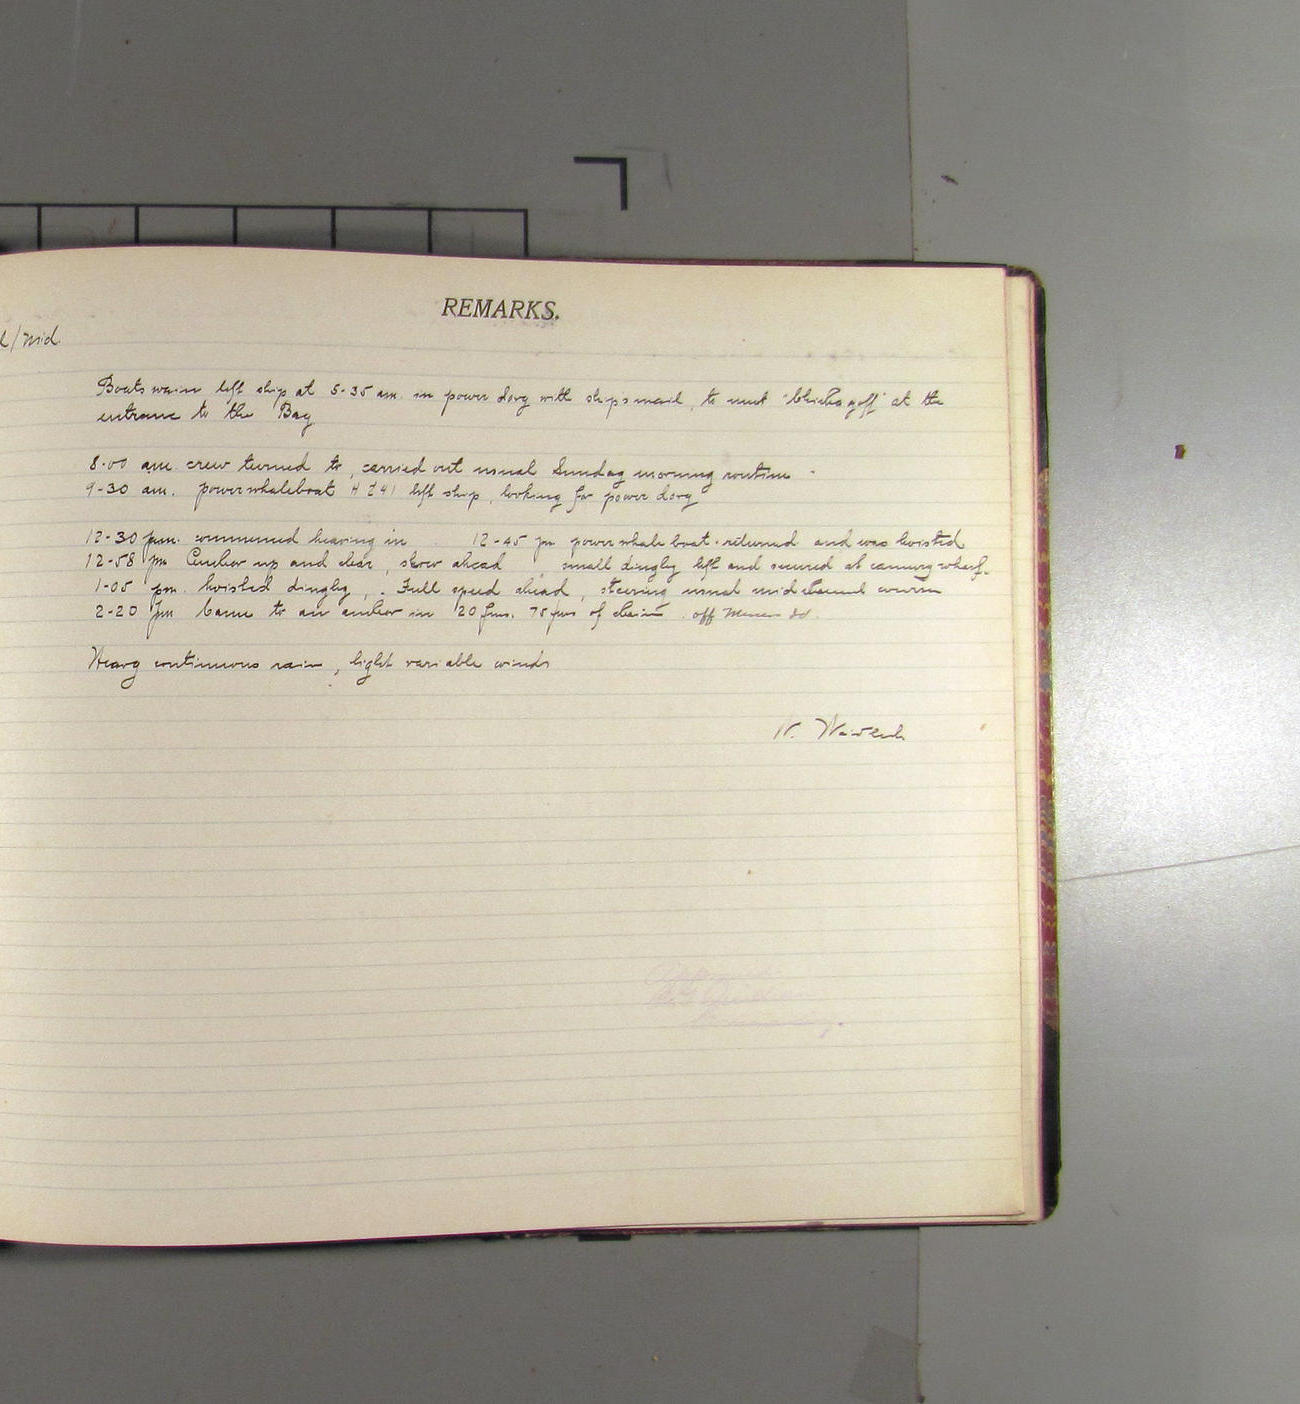 REMARKS.
/Mid.
Boatswain left ship at 5-35 am. in power dory with ships mail, to meet "Chichagoff" at the
entrance to the Bay
8-00 am. crew turned to, carried out usual Sunday morning routine.
9-30 am. power whaleboat left ship, looking for power dory
12-30 pm. commenced heaving in 12-45 pm power whaleboat returned and was hoisted
12-58 pm Anchor up and clear, slow ahead, small dinghy left and secured at cannery wharf.
1-05 pm. hoisted dinghy, Full speed ahead, steering usual mid channel course
2-20 pm Came to an anchor in 20 fms. 75 fms of chain off
Heavy continuous rain, light variable winds